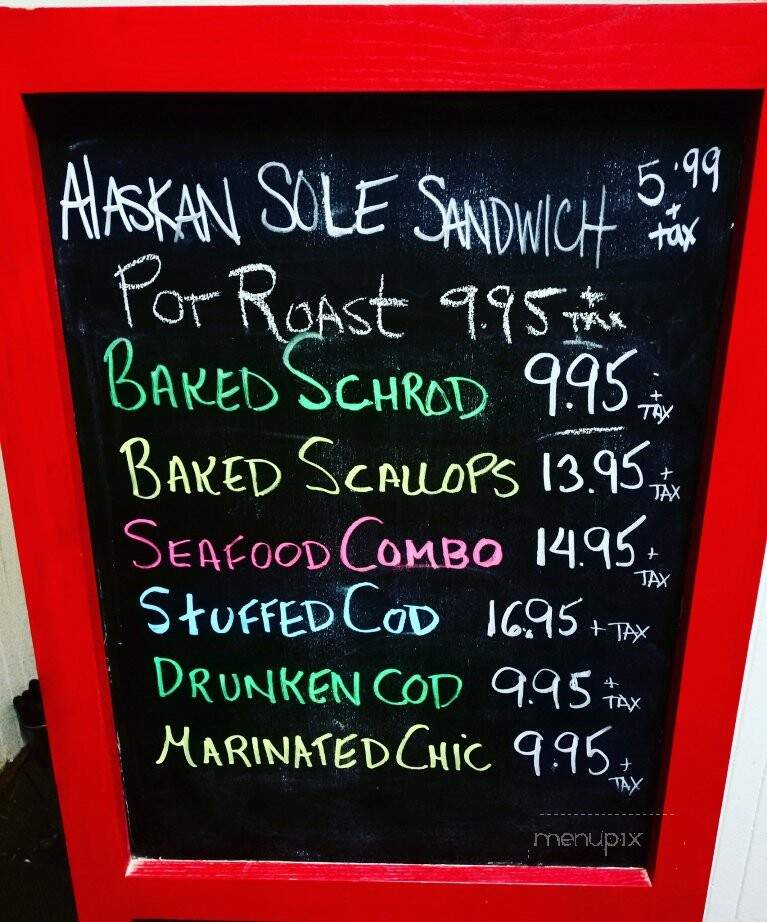 ALASKAN SOLE SANDWICH 5.99 + tax
POT ROAST 9.95 + TAX
BAKED SCHROD 9.95 + TAX
BAKED SCALLOPS 13.95 + TAX
SEAFOOD COMBO 14.95 + TAX
STUFFED COD 16.95 + TAX
DRUNKEN COD 9.95 + TAX
MARINATED CHIC 9.95 + TAX
menupix